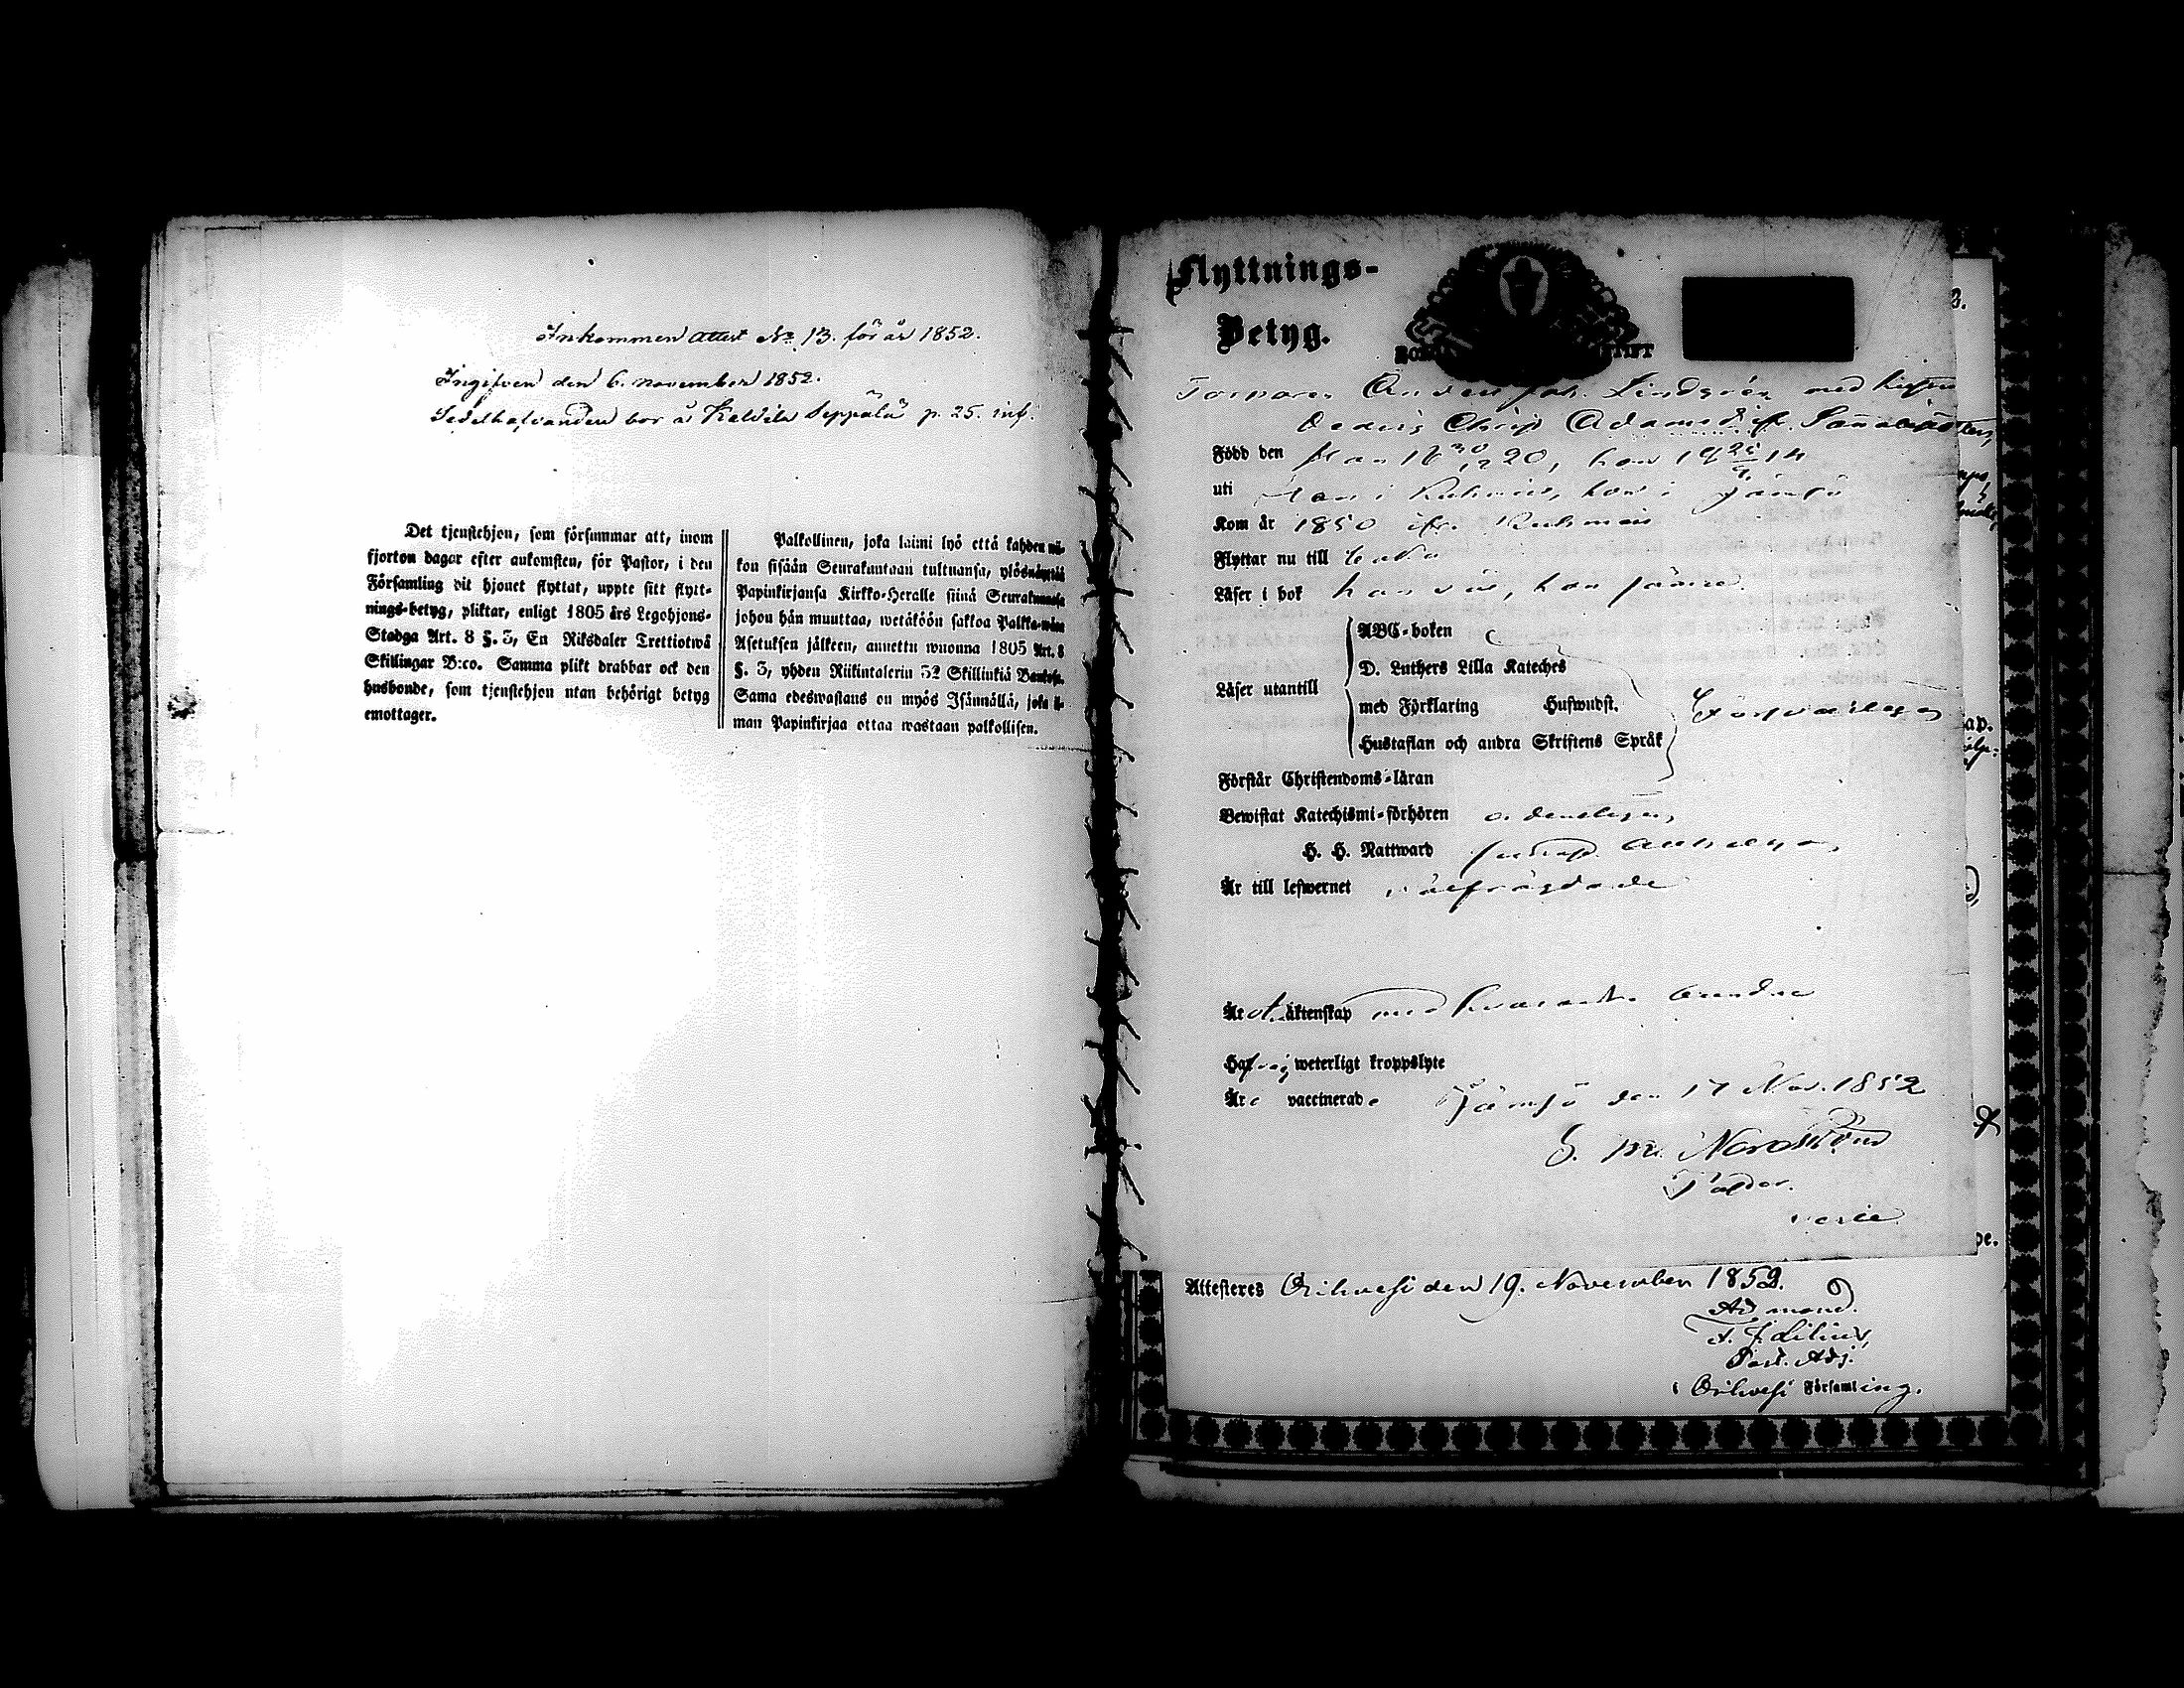 Inkommen attest No 13. för år 1852.
Ingifven den 6. november 1852.
Sedelhafvanden bor å Keldila Seppälä p. 25. inf.
Det tjenstehjon, som försummar att, inom
fjorton dagar efter ankomsten, för Pastor, i den
Församling dit hjonet flyttat, uppte sitt flytt-
nings-betyg, pliktar, enligt 1805 års Legohjons-
Stadga Art. 8 §. 3, En Riksdaler Trettiotwå
Skillingar B:co. Samma plikt drabbar ock den
husbonde, som tjenstehjon utan behörigt betyg
emottager.
Palkollinen, joka laimi lyö että kahden wii-
kon sisään Seurakuntaan tultuansa, ylösnäyttää
Papinkirjansa Kirkko-Heralle siinä Seurakunnassa
johon hän muuttaa, wetäköön sakkoa Palkka-wäen
Asetuksen jälkeen, annettu wuonna 1805 Art. 8
§. 3, yhden Riikintalerin 32 Skillinkiä Bankos.
Sama edeswastaus on myös Isännällä, joka il-
man Papinkirjaa ottaa wastaan palkollisen.
Flyttnings-
Betyg.
Torparen Anders Joh. Lindgrén med hustrun
Christ. Adamsdr
Född den han 18 30/12 20, hon 14
uti han i Kuhmois, hon i Jämsä
Kom år 1850 ifr. Kuhmois
Flyttar nu till
Läser i bok han svar, hon
Läser utantill
ABC-boken
D. Luthers Lilla Kateches
med Förklaring Hufwudst.
Hustaflan och andra Skriftens Språk
Försvarligen
Förstår Christendoms-läran
Bewistat Katechismi-förhören ordentligen
H. H. Nattward
Är till lefwernet välfrägdade
Är äktenskap med hvarandra bundne
Haf ej weterligt kroppslyte
Äre vaccinerade Jämsä den 17 Nov. 1852
G. M. Nordlund
Pastor.
Attesteres Orihvesi den 19. November 1852.
Ad mand.
A. F. Lilius,
Past. Adj.
i Orihvesi Församling.